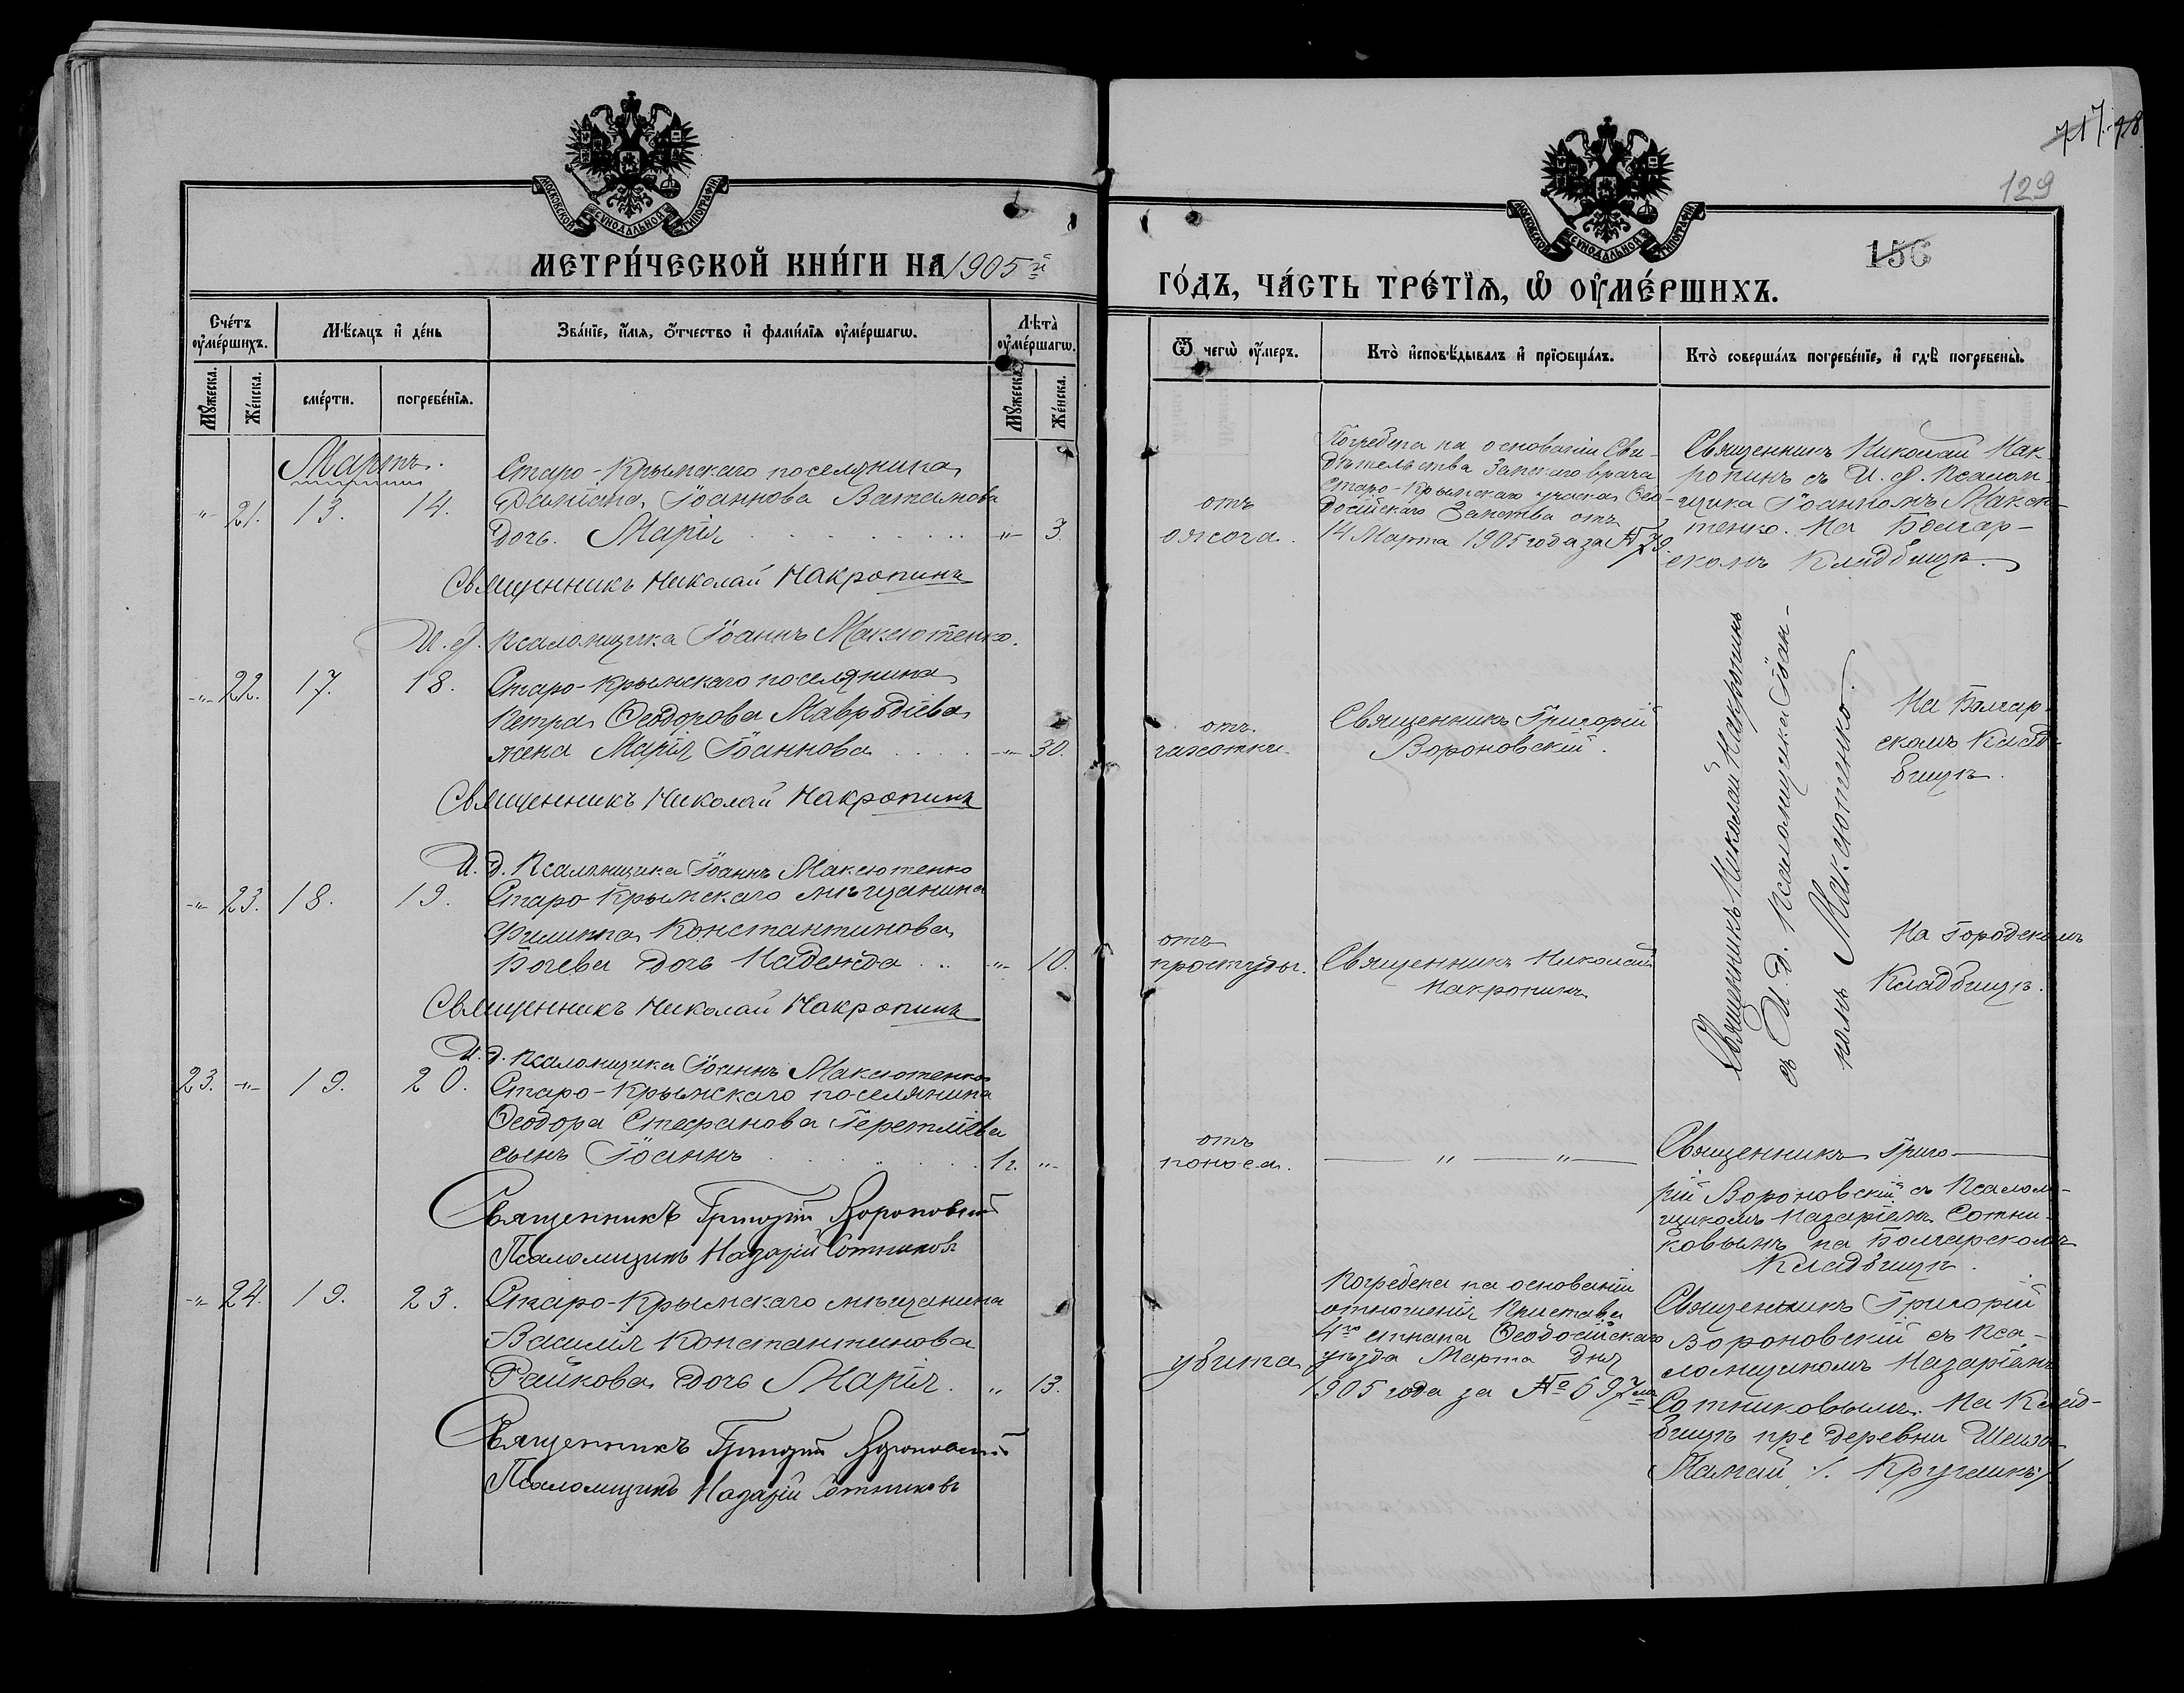 МОСКОВСКОЙ СѴНОДАЛЬНОЙ ТИПОГРАФІИ
МЕТРИ́ЧЕСКОЙ КНИ́ГИ НА 1905 й
Сче́тъ оу҆ме́ршихъ.
Мѣ́сяцъ и҆ де́нь
Зва́нїе, и҆́мѧ, ѻ҆́тчество и҆ фами́лїѧ оу҆ме́ршагѡ.
Лѣ́та̀ оу҆ме́ршагѡ.
Мꙋ́жеска.
Же́нска.
сме́рти.
погребе́нїѧ.
Мꙋ́жеска.
Же́нска.
Мартъ.
Старо-Крымскаго поселянина
-"- 21. 13. 14. Даніила Іоаннова Ватамова
дочь Марія -"- 3
Священникъ Николай Накропинъ
И. д. псаломщика Іоаннъ Максютенко.
-"- 22. 17. 18. Старо-Крымскаго поселянина
Петра Ѳеодорова Мавродіева
жена Марія Іоаннова -"- 30.
Священникъ Николай Накропинъ
И. д. Псаломщика Іоаннъ Максютенко
-"- 23. 18. 19. Старо-Крымскаго мѣщанина
Филиппа Константинова
Бочева дочь Надежда -"- 10.
Священникъ Николай Накропинъ
И. д. Псаломщика Іоаннъ Максютенко
23. -"- 19. 20. Старо-Крымскаго поселянина
Ѳеодора Стефанова Теретліева
сынъ Іоаннъ 1г. -"-
Священникъ Григорій Вороновскій
Псаломщикъ Назарій Сотниковъ
-"- 24. 19. 23. Старо-Крымскаго мѣщанина
Василія Константинова
Райкова дочь Марія " 13.
Священникъ Григорій Вороновскій
Псаломщикъ Назарій Сотниковъ
129
156
МОСКОВСКОЙ СѴНОДАЛЬНОЙ ТИПОГРАФІИ
ГО́ДЪ, ЧА́СТЬ ТРЕ́ТЇѦ, Ѡ҆ ОУ҆МЕ́РШИХЪ.
Ѿ чегѡ̀ оу҆́меръ.
Кто̀ и҆сповѣ́дывалъ и҆ прїѡбща́лъ.
Кто̀ соверша́лъ погребе́нїе, и҆ гдѣ̀ погребены̀.
отъ
ожога.
Погребена на основаніи Сви-
дѣтельства Земскаго врача
Старо-Крымскаго участка Ѳео-
досійскаго Земства отъ
14 Марта 1905 года за № 79.
Священникъ Николай Нак-
ропинъ съ И. д. Псалом-
щика Іоанномъ Максю-
тенко. На Болгар-
скомъ Кладбищѣ.
отъ
чахотки.
Священникъ Григорій
Вороновскій.
Священникъ Николай Накропинъ
съ И. д. Псаломщика Іоан-
номъ Максютенко.
На Болгар-
скомъ Клад-
бищѣ.
отъ
простуды.
Священникъ Николай
Накропинъ
На Городскомъ
Кладбищѣ.
отъ
поноса.
" "
Священникъ Григо-
рій Вороновскій съ Псалом-
щикомъ Назаріемъ Сотни-
ковымъ на Болгарскомъ
Кладбищѣ.
убита
Погребена на основаніи
отношенія Пристава
4го стана Ѳеодосійскаго
уѣзда Марта дня
1905 года за № 697
Священникъ Григорій
Вороновскій съ Пса-
ломщикомъ Назаріемъ
Сотниковымъ. На Клад-
бищѣ при деревни
/. Кругликъ ./